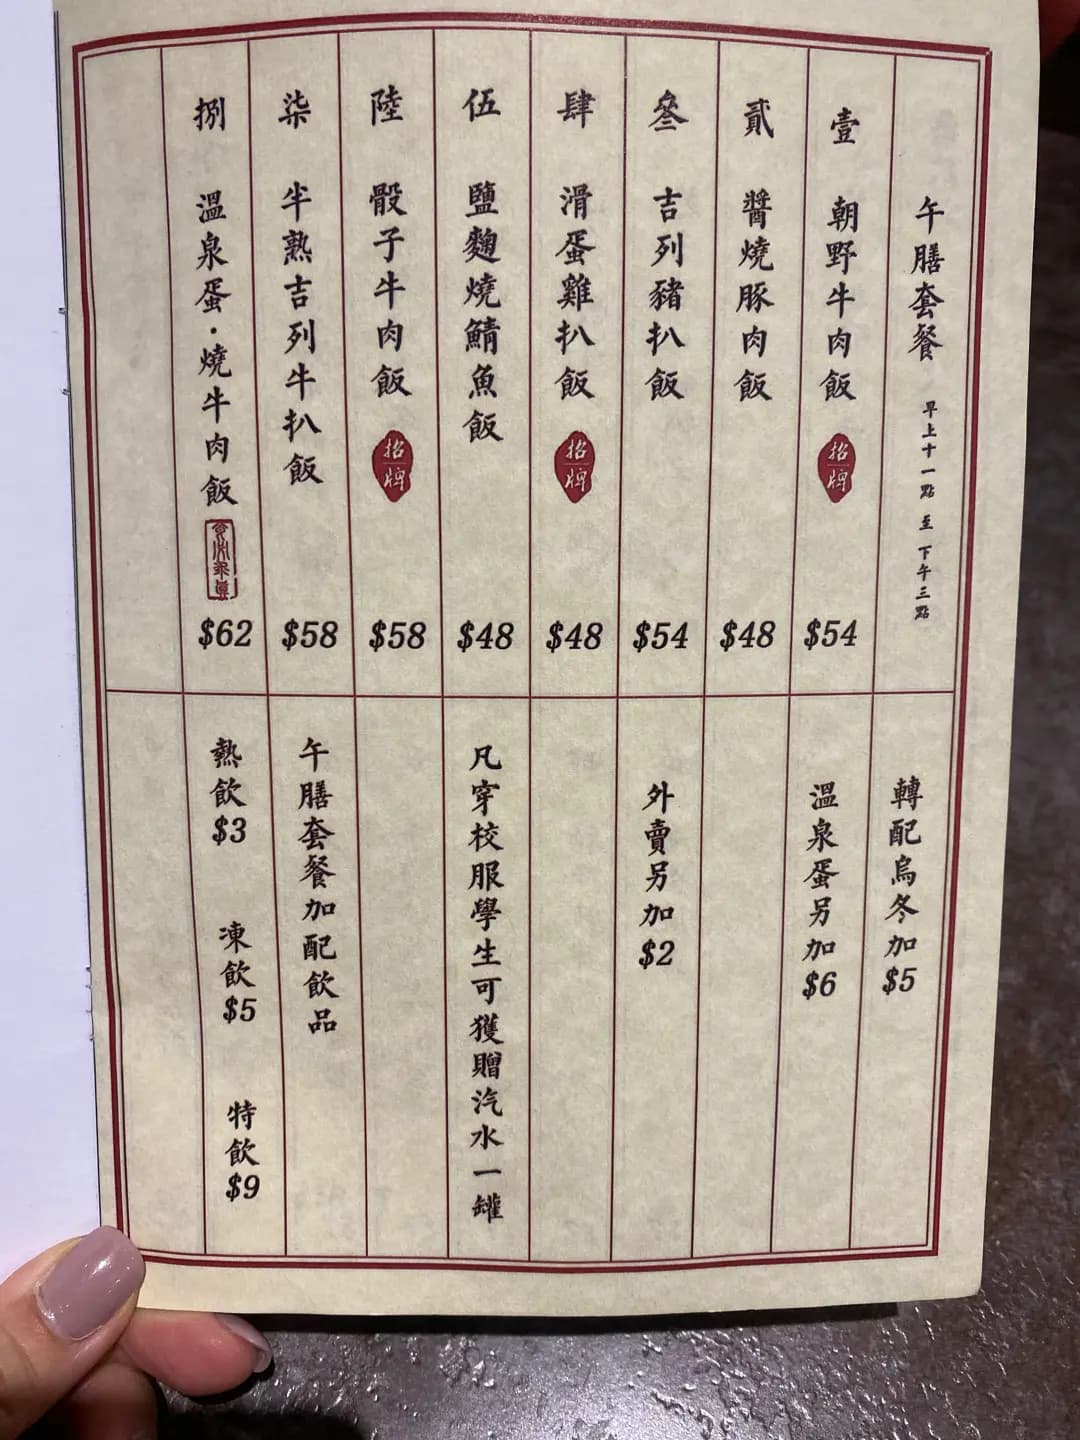 午膳套餐 早上十一點 至 下午三點
壹 朝野牛肉飯 招牌 $54
貳 醬燒豚肉飯 $48
叁 吉列豬扒飯 $54
肆 滑蛋雞扒飯 招牌 $48
伍 鹽麴燒鯖魚飯 $48
陸 骰子牛肉飯 招牌 $58
柒 半熟吉列牛扒飯 $58
捌 溫泉蛋·燒牛肉飯 $62
轉配烏冬加$5
溫泉蛋另加$6
外賣另加$2
凡穿校服學生可獲贈汽水一罐
午膳套餐加配飲品
熱飲$3 凍飲$5 特飲$9